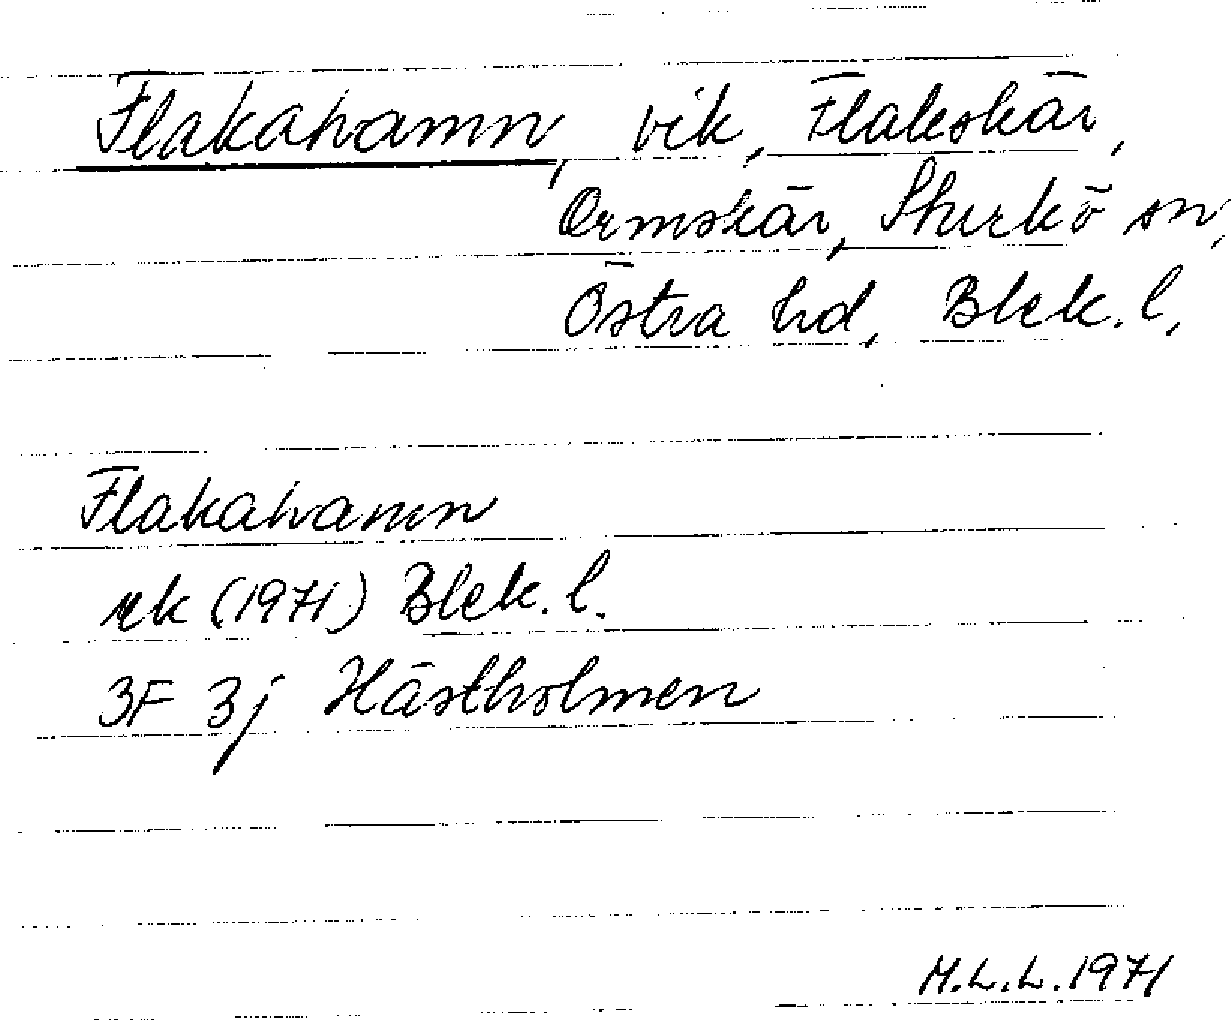 Flakahamn, vik, Flakskär,
Ormskär, Sturkö sn,
Östra hd, Blek. l.
Flakahamn
ek (1971) Blek. l.
3F 3j Hästholmen
M.L.L. 1971